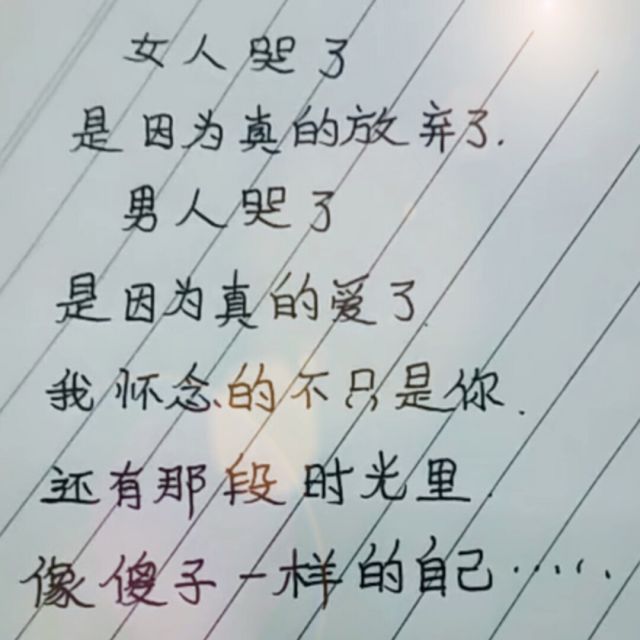 女人哭了
是因为真的放弃了.
男人哭了
是因为真的爱了.
我怀念的不只是你.
还有那段时光里.
像傻子一样的自己······